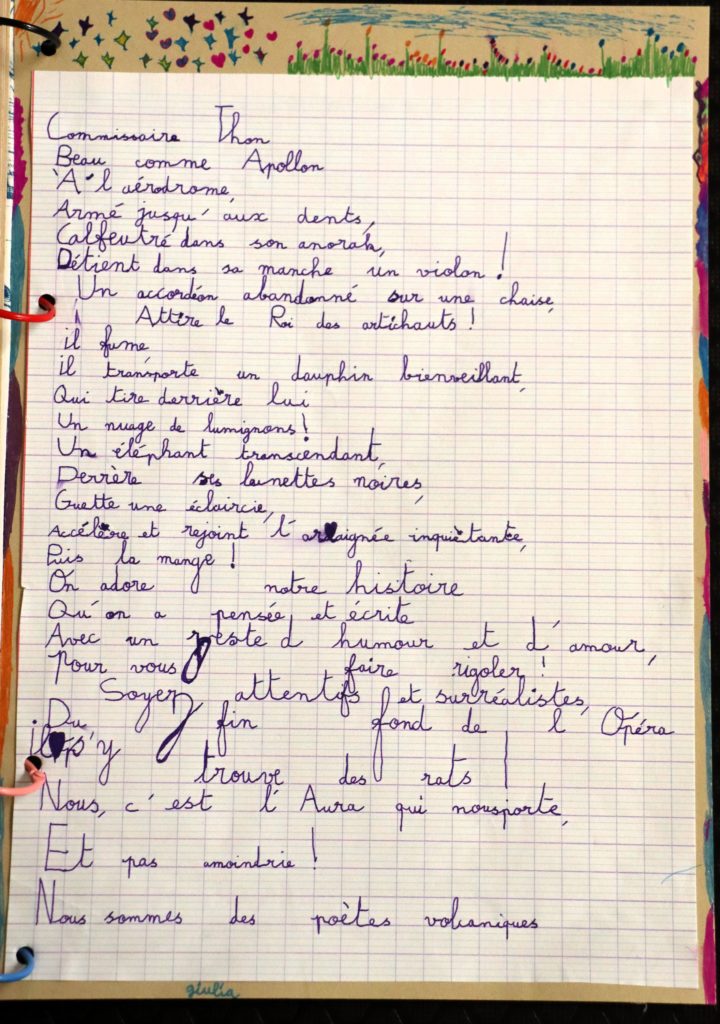 Commissaire Thon
Beau comme Apollon
A l'aérodrome,
Armé jusqu'aux dents,
Calfeutré dans son anorak,
Détient dans sa manche un violon !
Un accordéon abandonné sur une chaise,
Attire le Roi des artichauts !
il fume
il transporte un dauphin bienveillant,
Qui tire derrière lui
Un nuage de lumignons !
Un éléphant transcendant,
Derrère ses lunettes noires,
Guette une éclaircie,
Accélère et rejoint l'araignée inquiètante,
Puis la mange !
On adore notre histoire
Qu'on a pensée et écrite
Avec un reste d humour et d'amour,
Pour vous faire rigoler !
Soyez attentifs et surréalistes,
Du fin fond de l Opéra
il p'y
trouve des rats !
Nous, c'est l'Aura qui nousporte,
Et pas amoindrie !
Nous sommes des poètes volcaniques
giulia